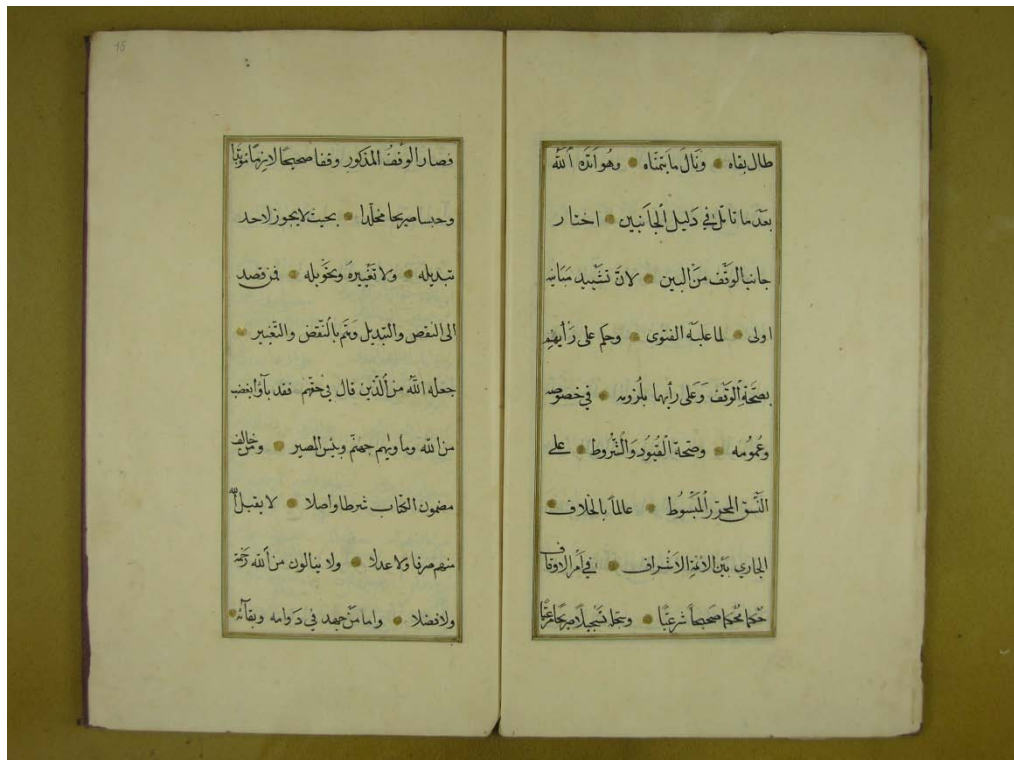 طال بقاه ونال ما يتمناه وهو ايّده الله
بعد ما تامّل في دليل الجانبين اختار
جانب الوقف من البين لانّ تشييد مبانيه
اولى لما عليه الفتوى وحكم على رأيهم
بصحّة الوقف وعلى رأيهما بلزومه في خصوصه
وعمومه وصحة القيود والشروط على
النّسق المحرّر المبسوط عالمًا بالخلاف
الجاري بين الائمة الاشراف في أمر الاوقاف
حكمًا محكمًا صحيحًا شرعيًّا وسجّله تسجيلًا صريحًا مرعيًّا
15
فصار الوقف المذكور وقفا صحيحًا لازمًا مؤبّدًا
وحبسا صريحا مخلّدا بحيث لا يجوز لاحد
تبديله ولا تغييره وتحويله فمن قصد
الى النقص والتبديل وهمّ بالنّقض والتّغيير
جعله الله من الّذين قال في حقّهم فقد باؤا بغضب
من الله وماويهم جهنّم وبئس المصير ومن خالف
مضمون الكتاب شرطا واصلا لا يقبل الله
منهم صرفا ولا عدلا ولا ينالون من الله رحمة
ولا فضلا واما من جهد في دوامه وبقائه